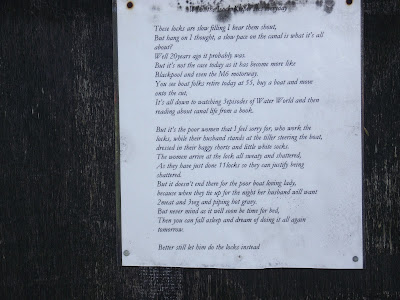 These locks are slow filling I hear them shout,
But hang on I thought, a slow pace on the canal is what it's all
about?
Well 20years ago it probably was.
But it's not the case today as it has become more like
Blackpool and even the M6 motorway.
You see boat folks retire today at 55, buy a boat and move
onto the cut,
It's all down to watching 3episodes of Water World and then
reading about canal life from a book,
But it's the poor women that I feel sorry for, who work the
locks, while their husband stands at the tiller steering the boat,
dressed in their baggy shorts and little white socks.
The women arrive at the lock all sweaty and shattered,
As they have just done 11locks so they can justify being
shattered.
But it doesn't end there for the poor boat loving lady,
because when they tie up for the night her husband will want
2meat and 3veg and piping hot gravy.
But never mind as it will soon be time for bed,
Then you can fall asleep and dream of doing it all again
tomorrow.
Better still let him do the locks instead